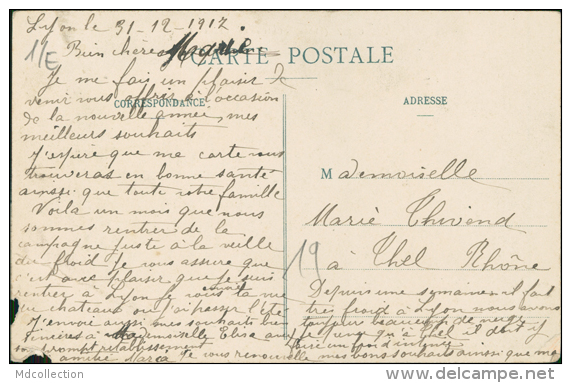 Lyon le 31-12-1912.
11E
Bien chère Marie
CARTE POSTALE
Je me fais un plaisir de
venir vous offrir à l'occasion
CORRESPONDANCE
ADRESSE
de la nouvelle année, mes
meilleurs souhaits
J'espère que ma carte vous
trouveras en bonne santé
ainssi que toute votre famille
Voila un mois que nous
sommes rentrer de la
campagne juste à la veille
du froid je vous assure que
c'est avec plaisir que je suis
rentrer à Lyon je vous
au chateau ou j'ai passer l'été
J'envoie aussi mes souhaits bien
sincères à Mademoiselle Elise au
prompt rétablissement
amitié Marca Je vous renouvelle mes bons souhaits ainssi que ma
Mademoiselle
Marie Thivend
19
à Thel Rhône
Depuis une semaine il fait
très froid à Lyon nous avons
toujour beaucoup de neige
Mdcollection
delcampe.net